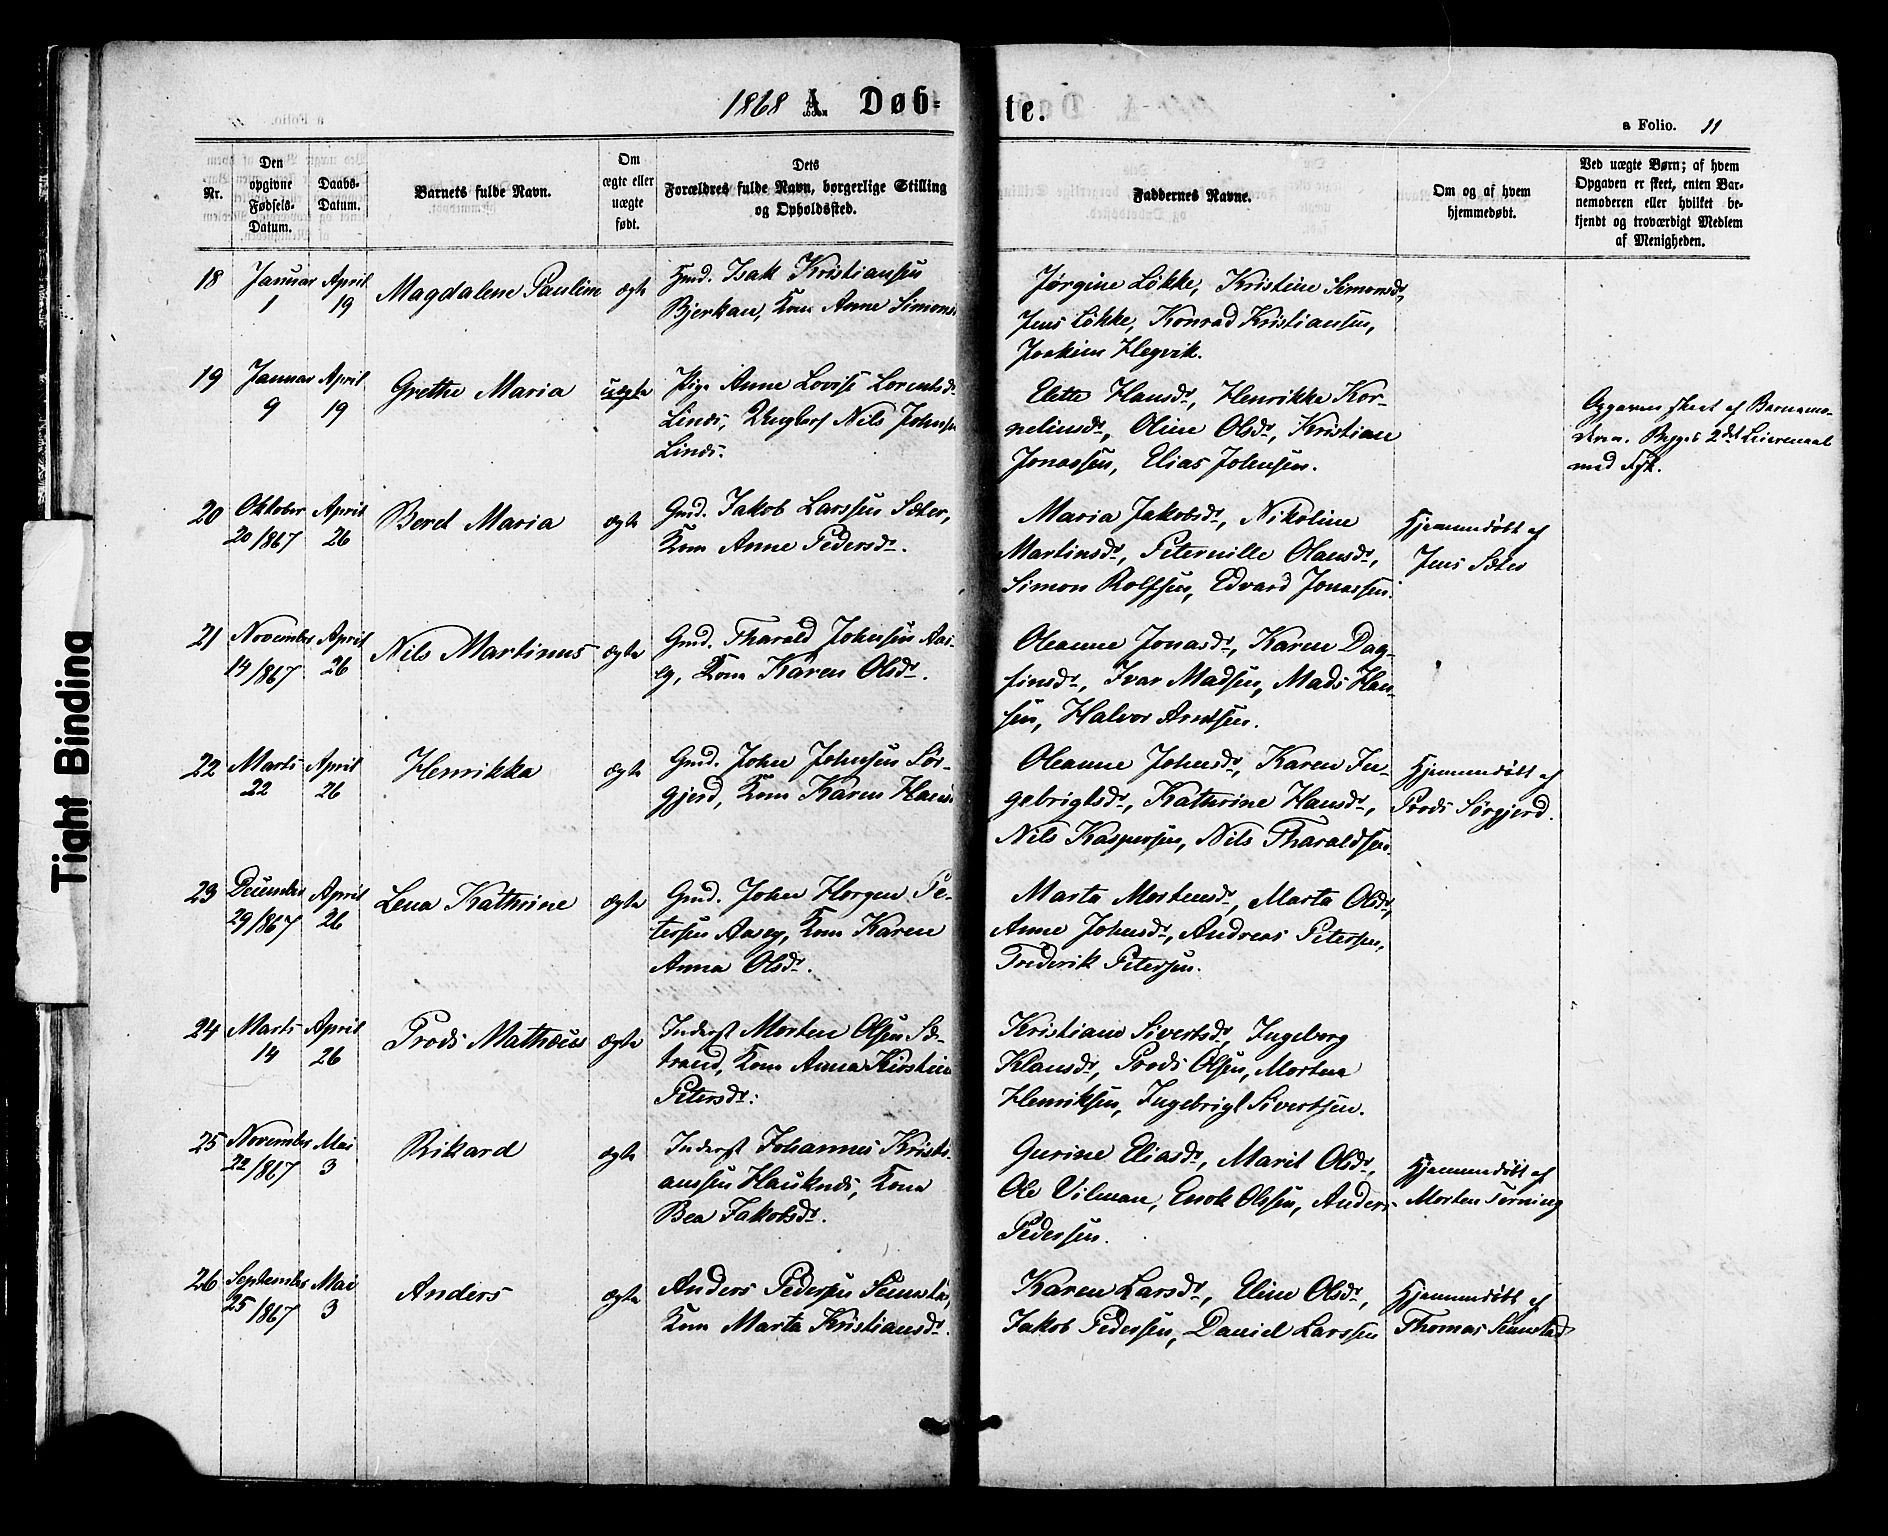 1868 A. Døb-te.
a Folio. 11
Nr.
Den opgivne Fødsels-Datum.
Daabs-Datum.
Barnets fulde Navn.
Om ægte eller uægte født.
Dets Forældres fulde Navn, borgerlige Stilling og Opholdssted.
Faddernes Navne.
Om og af hvem hjemmedøbt.
Ved uægte Børn; af hvem Opgaven er skeet, enten Barnemoderen eller hvilket bekjendt og troværdigt Medlem af Menigheden.
18 Januar 1 April 19 Magdalene Pauline ægte
Gmd. Isak Kristiansen
Bjerkan, Kone Anne Simons
Jørgine Løkke, Kristine Simonsdr,
Jens Løkke, Konrad Kristiansen,
Joakim Hegvik.
19 Januar 9 April 19 Grethe Maria uægte
Pige Anne Lovise Lorentsdr
Linds, Ungkarl Nils Johnsen
Linds.
Elette Hansdr, Henrikke Kor-
neliusdr, Oline Olsdr, Kristian
Jonassen, Elias Johnsen.
Opgaven skeet af Barnemo-
deren. Begges 2det Leiermaal
med
20 Oktober 20/1867 April 26 Beret Maria ægte
Gmd. Jakob Larssen Sæter,
Kone Anne Pedersdr.
Maria Jakobsdr, Nikoline
Martinsdr, Peternille Olausdr,
Simon Rolfsen, Edvard Jonassen.
Hjemmedøbt af
Jens Sæter
21 November 14/1867 April 26 Nils Martinus ægte
Gmd. Tharald Johnsen Aas-
eg, Kone Karen Olsdr.
Oleanne Jonasdr, Karen Dag-
finsdr, Ivar Madsen, Mads Han-
sen, Halvor Arntsen.
22 Marts 22 April 26 Henrikka ægte
Gmd. John Johnsen Sør-
gjerd, Kone Karen Hans
Oleanne Johnsdr, Karen In-
gebrigtsdr, Kathrine Hansdr,
Nils Kaspersen, Nils Tharaldsen.
Hjemmedøbt af
Prods Sørgjerd.
23 December 29/1867 April 26 Lena Kathrine ægte
Gmd. John Horgen Pe-
tersen Aaseg, Kone Karen
Anna Olsdr.
Marta Mortensdr, Marta Olsdr,
Anne Johnsdr, Andreas Petersen,
Frederik Petersen.
24 Marts 14 April 26 Prods Mathæus ægte
Inderst Morten Olsen Sæ-
trand, Kone Anna Kirstine
Petersdr.
Kristiane Sivertsdr, Ingeborg
Klausdr, Prods Olsen, Morten
Henriksen, Ingebrigt Sivertsen.
25 November 22/1867 Mai 3 Rikard ægte
Inderst Johannes Kristi-
ansen Hauknes, Kone
Bea Jakobsdr.
Gurine Eliasdr, Marit Olsdr,
Ole Vilman, Enok Olssen, Anders
Pedersen.
Hjemmedøbt af
Morten Terning
26 September 25/1867 Mai 3 Anders ægte
Anders Pedersen Seimstad,
Kone Marta Kristiansdr.
Karen Larsdr, Eline Olsdr,
Jakob Pedersen, Daniel Larssen
Hjemmedøbt af
Thomas Seimstad
Tight Binding